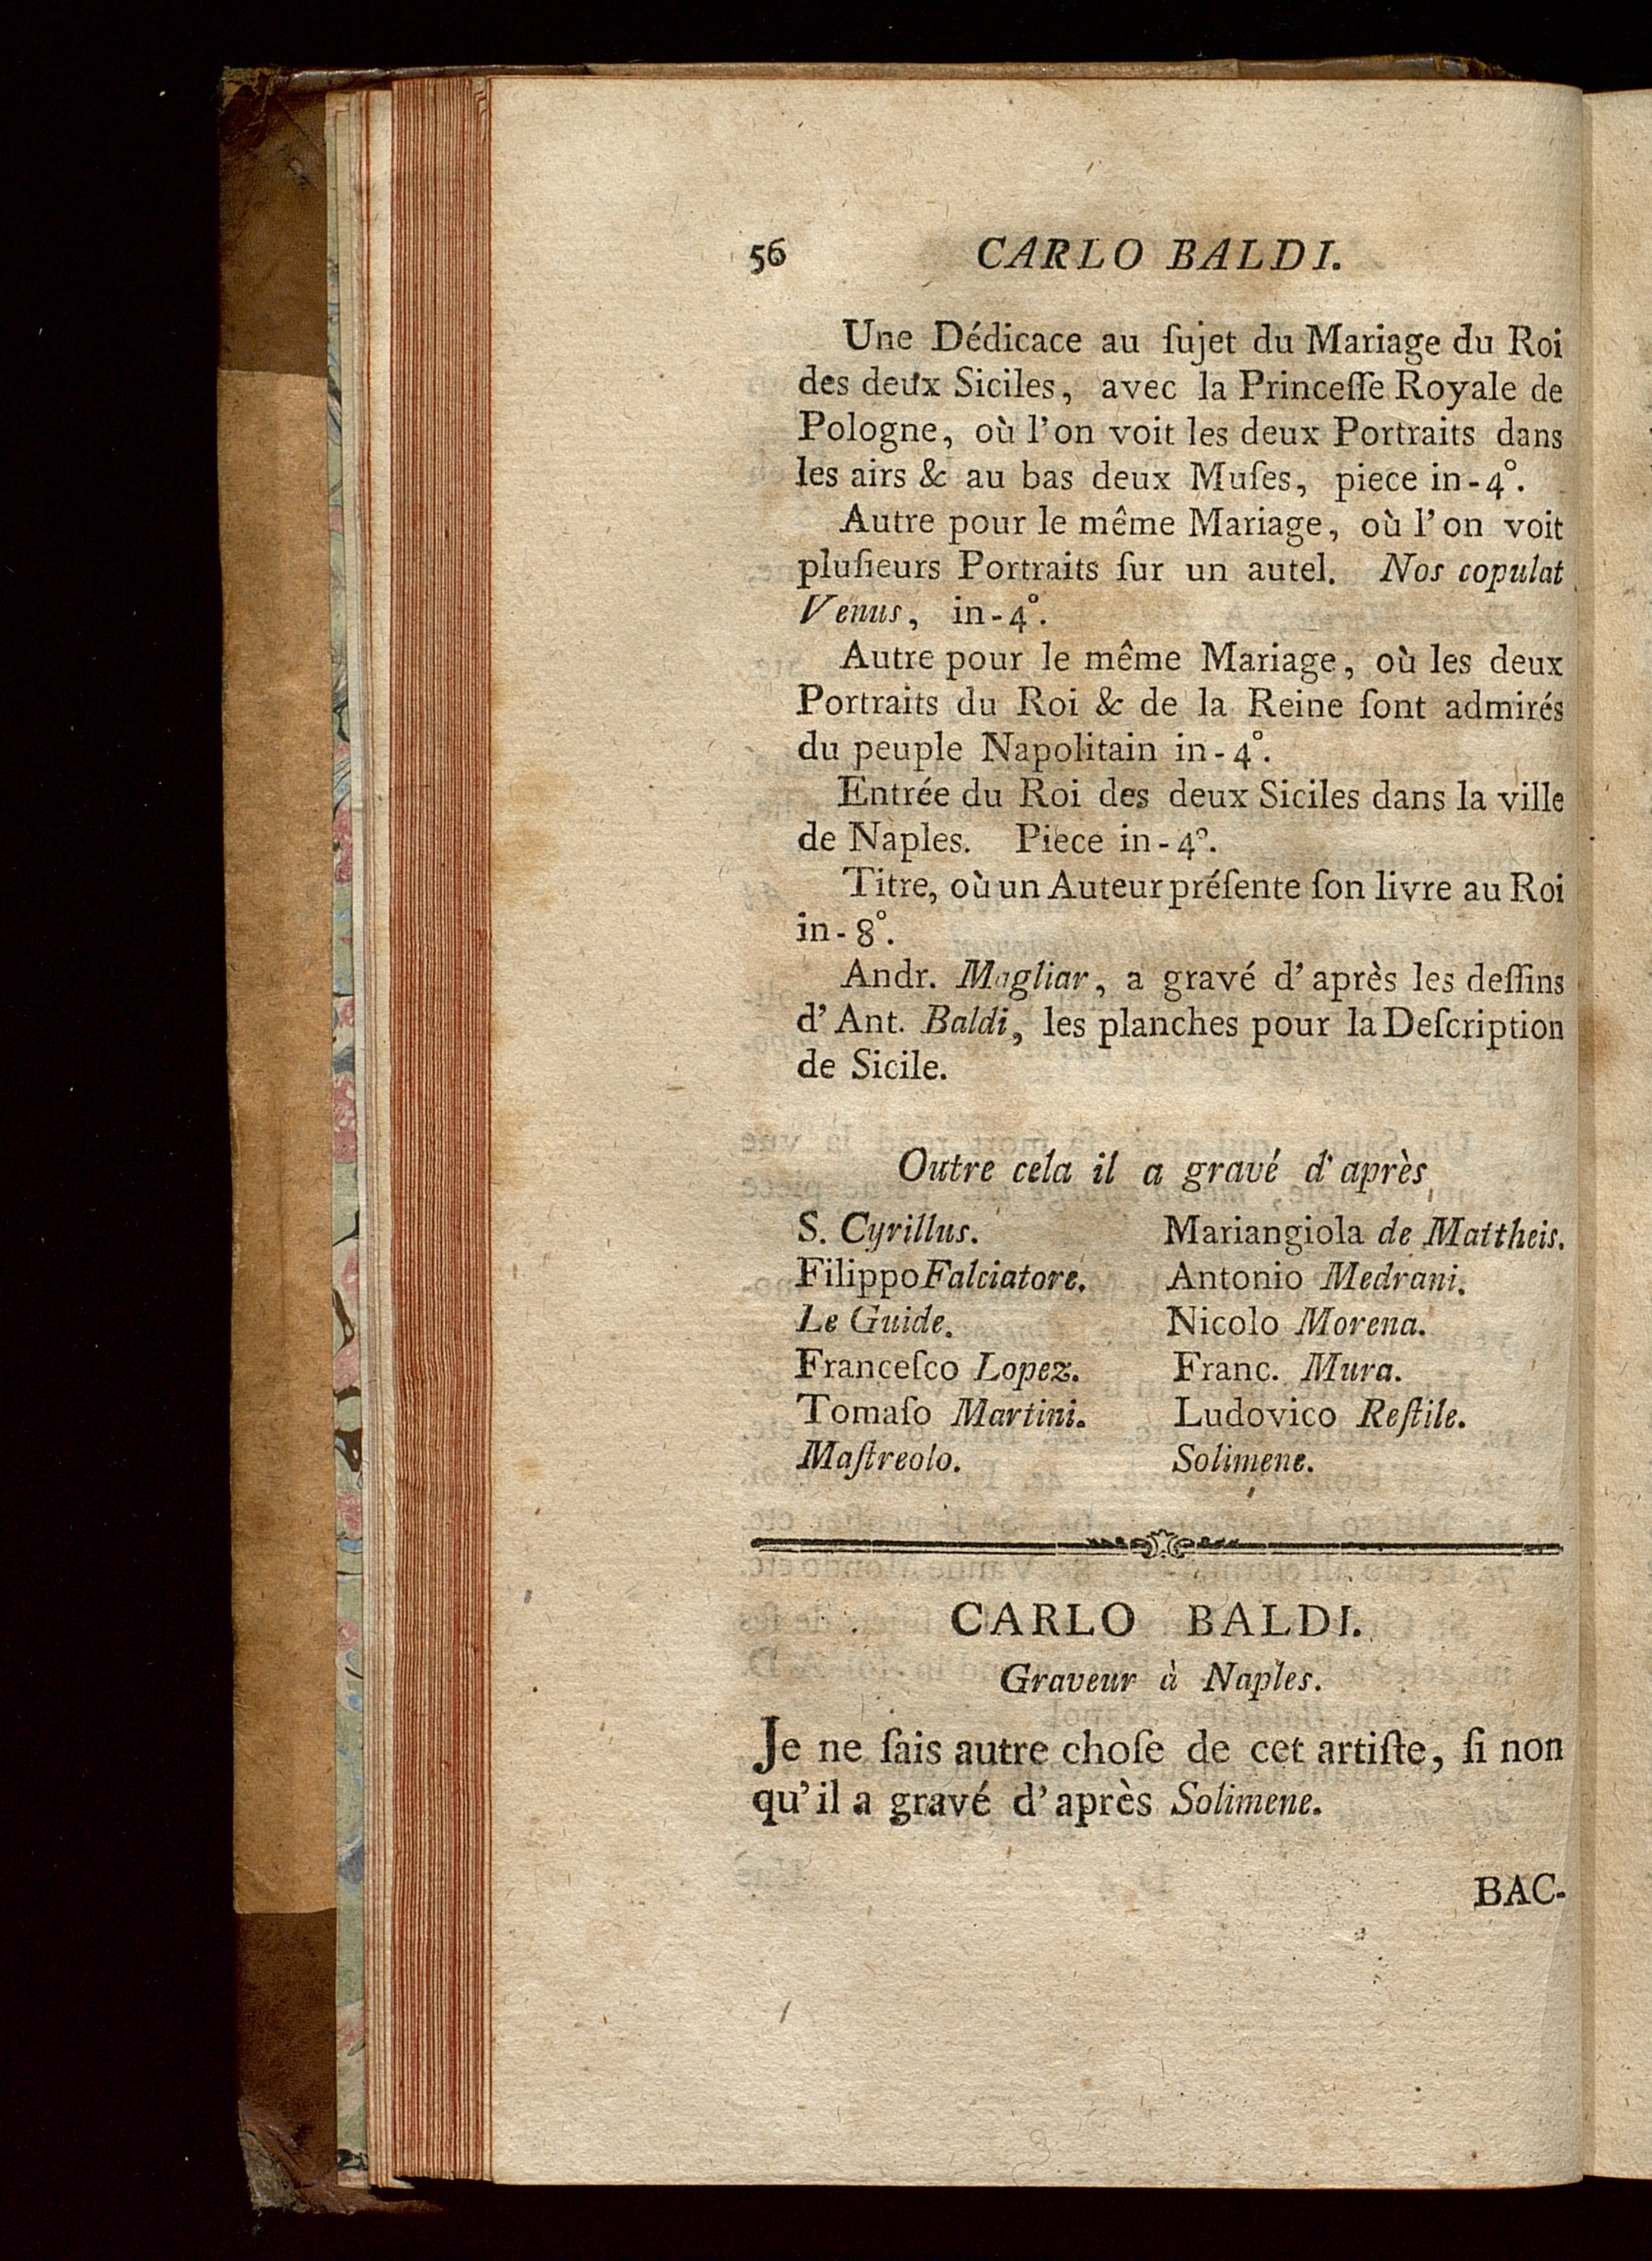 56 CARLO BALDI.
Une Dédicace au ſujet du Mariage du Roi
des deux Siciles, avec la Princeſſe Royale de
Pologne, où l'on voit les deux Portraits dans
les airs & au bas deux Muſes, piece in-4°.
Autre pour le même Mariage, où l'on voit
pluſieurs Portraits ſur un autel. Nos copulat
Venus, in-4°.
Autre pour le même Mariage, où les deux
Portraits du Roi & de la Reine ſont admirés
du peuple Napolitain in-4°.
Entrée du Roi des deux Siciles dans la ville
de Naples. Piece in-4°.
Titre, où un Auteur préſente ſon livre au Roi
in-8°.
Andr. Magliar, a gravé d'après les deſſins
d'Ant. Baldi, les planches pour la Deſcription
de Sicile.
Outre cela il a gravé d'après
S. Cyrillus.
Filippo Falciatore.
Le Guide.
Franceſco Lopez.
Tomaſo Martini.
Maſtreolo.
Mariangiola de Mattheis.
Antonio Medrani.
Nicolo Morena.
Franc. Mura.
Ludovico Reſtile.
Solimene.
CARLO BALDI.
Graveur à Naples.
Je ne ſais autre choſe de cet artiſte, ſi non
qu'il a gravé d'après Solimene.
BAC-